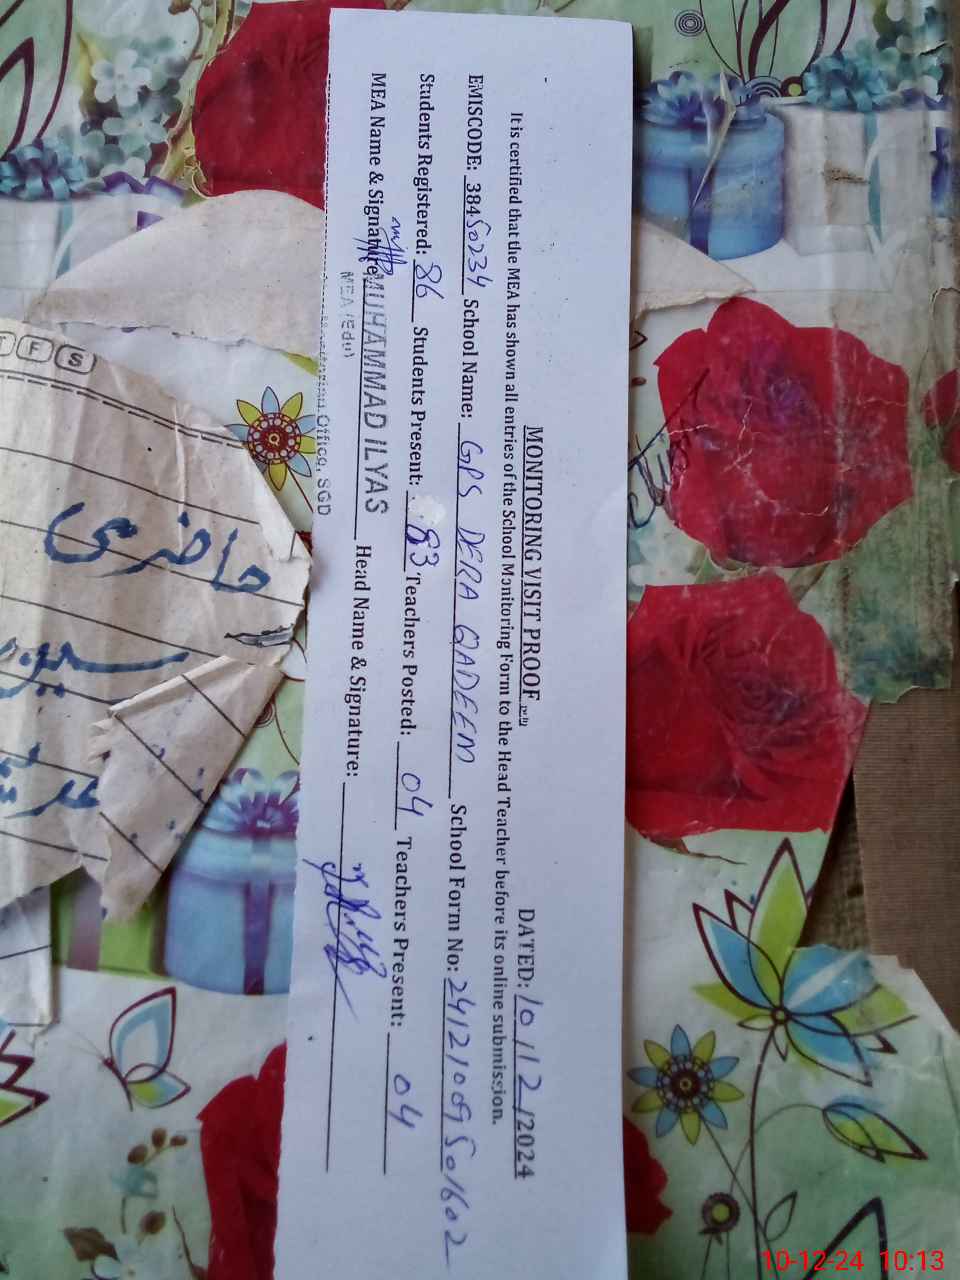 MONITORING VISIT PROOF
DATED: 10/12/2024
It is certified that the MEA has shown all entries of the School Monitoring Form to the Head Teacher before its online submission.
EMISCODE: 38450234 School Name: GPS DERA QADEEM School Form No: 24121009501602
Students Registered: 86 Students Present: 83 Teachers Posted: 04 Teachers Present: 04
MEA Name & Signature: MUHAMMAD ILYAS Head Name & Signature:
MEA (Edu)
Monitoring Office, SGD
F S
حاضری
10-12-24 10:13